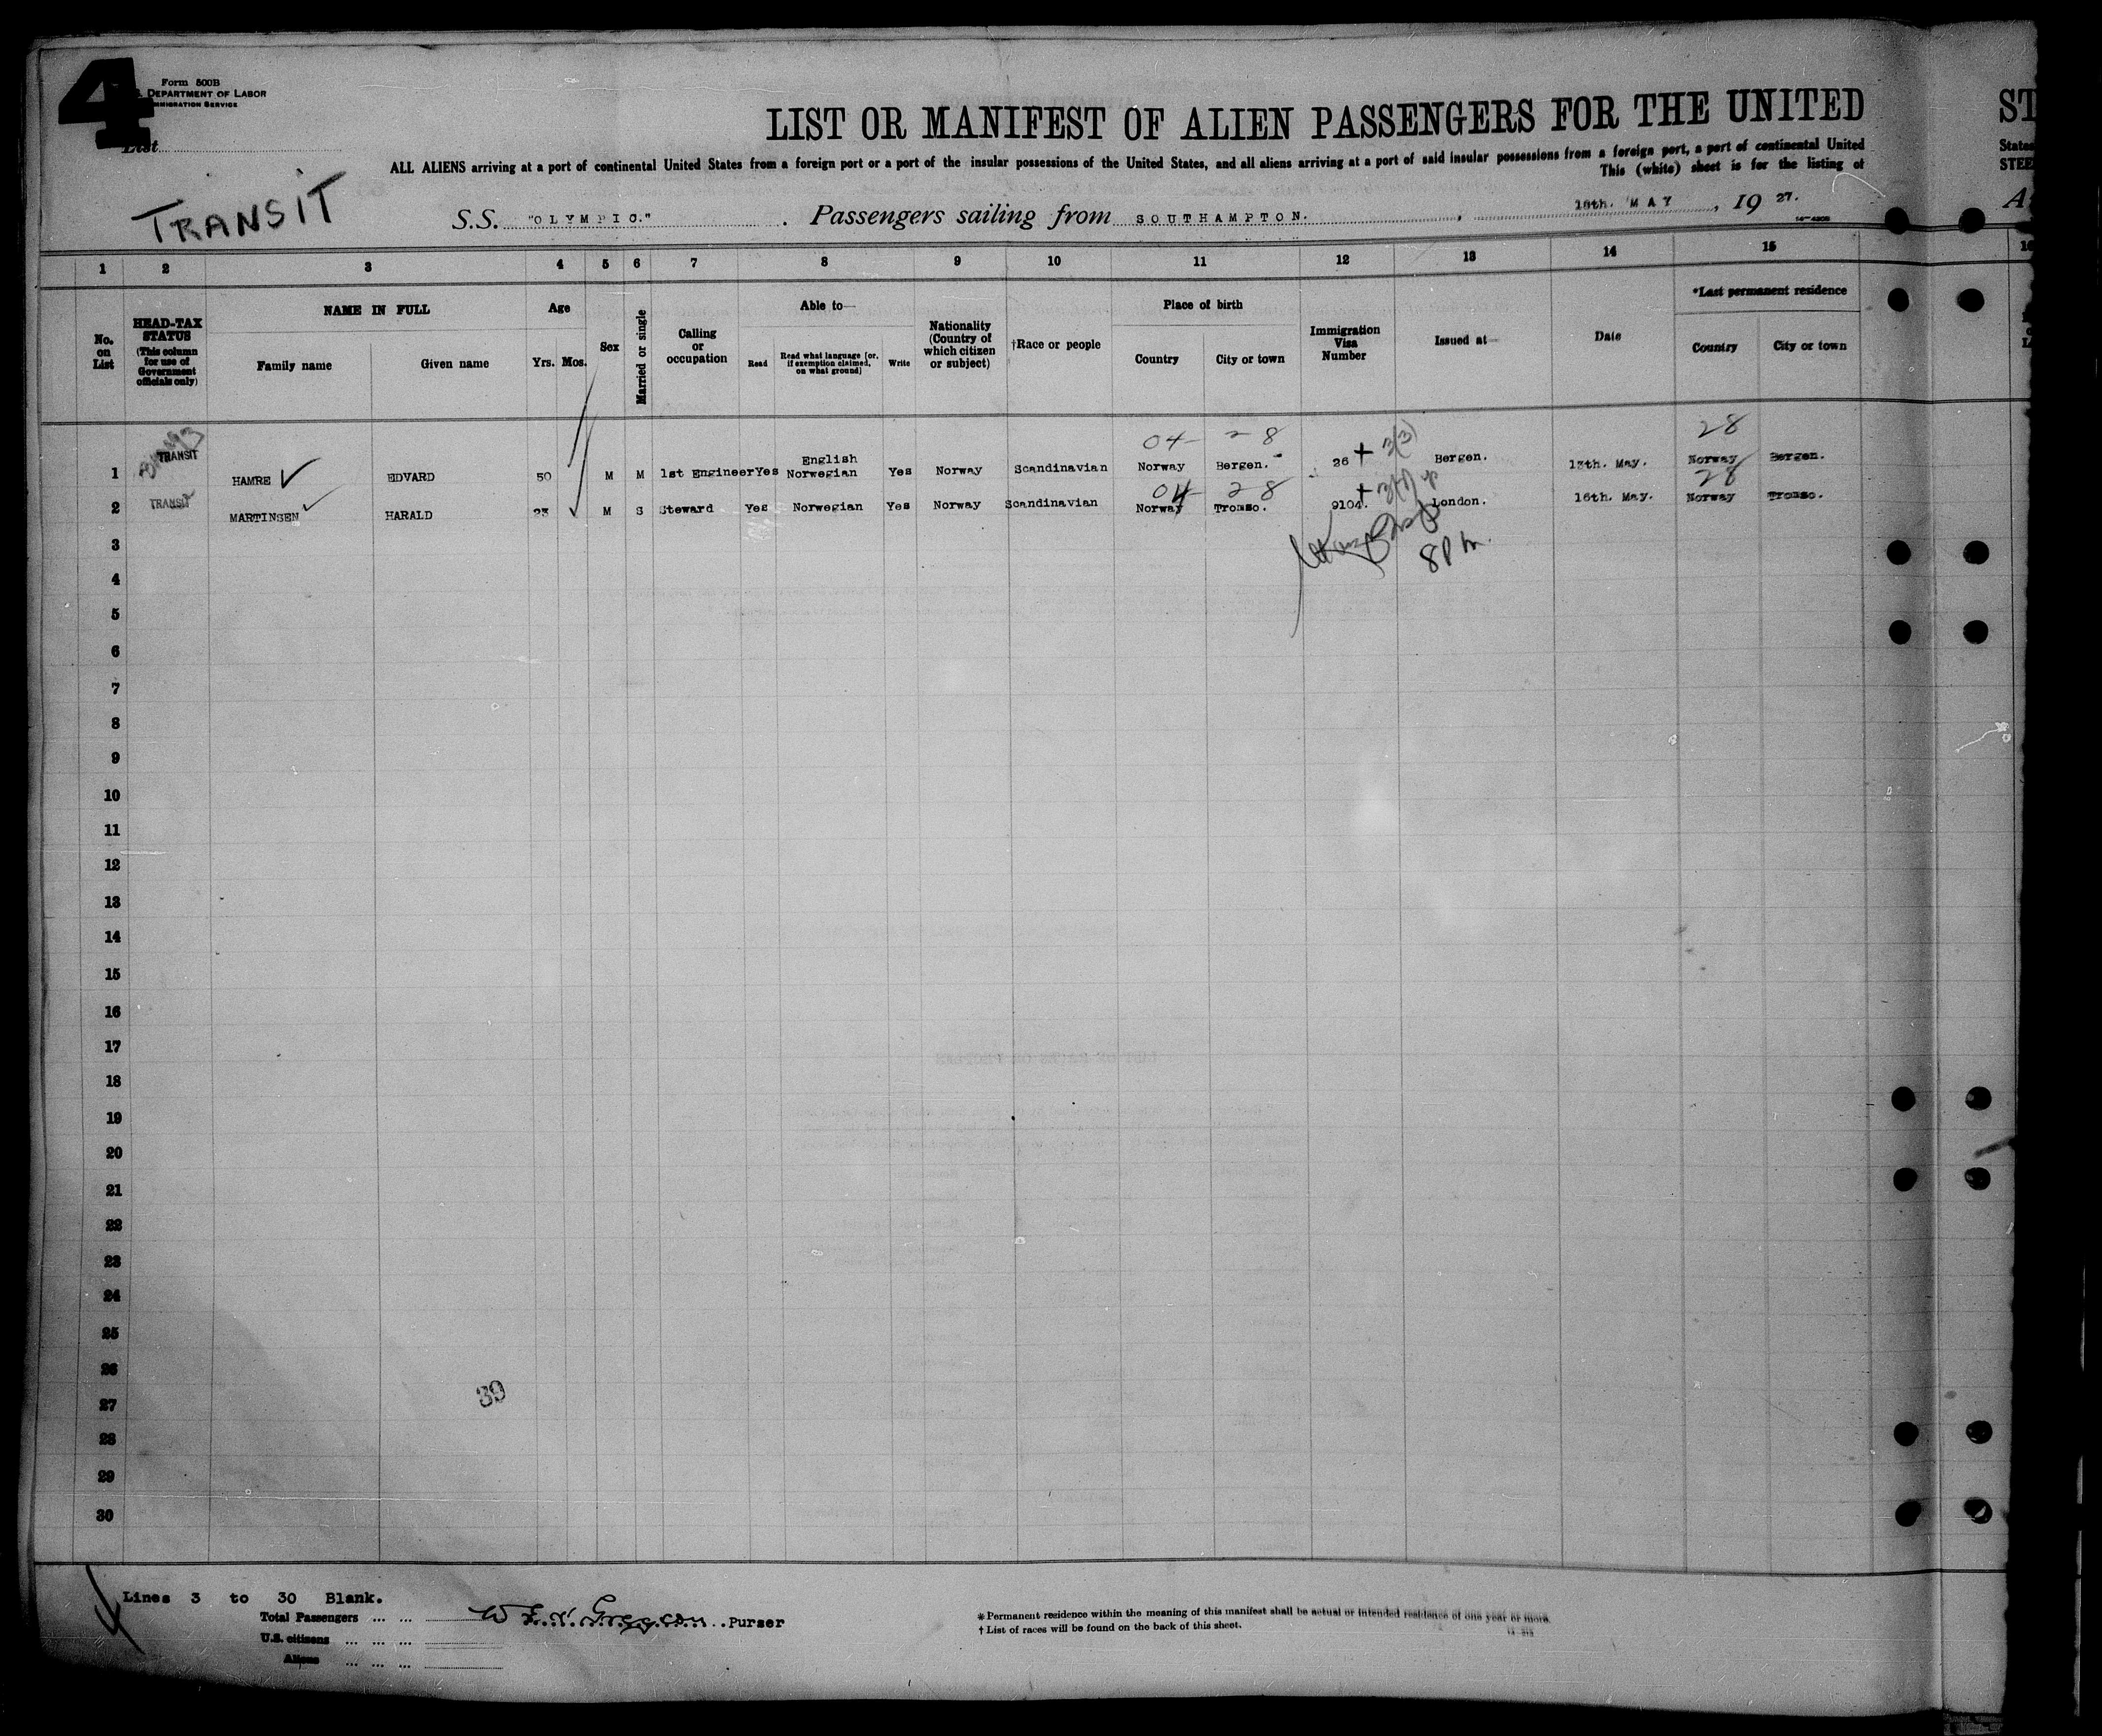 4
Form 500B
DEPARTMENT OF LABOR
IMMIGRATION SERVICE
List
LIST OR MANIFEST OF ALIEN PASSENGERS FOR THE UNITED
ST
ALL ALIENS arriving at a port of continental United States from a foreign port or a port of the insular possessions of the United States, and all aliens arriving at a port of said insular possessions from a foreign port, a port of continental United
States
This (white) sheet is for the listing of
STEE
TRANSIT
S.S. "OLYMPIC." . Passengers sailing from SOUTHAMPTON. , 18th. MAY , 19 27.
1 2 3 4 5 6 7 8 9 10 11 12 13 14 15
No. on List
HEAD-TAX STATUS
(This column for use of Government officials only)
NAME IN FULL
Family name Given name
Age
Yrs. Mos.
Sex
Married or single
Calling or occupation
Able to—
Read
Read what language [or, if exemption claimed, on what ground]
Write
Nationality (Country of which citizen or subject)
†Race or people
Place of birth
Country City or town
Immigration Visa Number
Issued at—
Date
*Last permanent residence
Country City or town
04 28 28
+ 3(3)
1 TRANSIT HAMRE EDVARD 50 M M 1st Engineer Yes English Norwegian Yes Norway Scandinavian Norway Bergen. 26 Bergen. 13th. May. Norway Bergen.
04 28 28
2 TRANSIT MARTINSEN HARALD 23 M S Steward Yes Norwegian Yes Norway Scandinavian Norway Tromso. 9104. London. 16th. May. Norway Tromso.
8 P m.
3
4
5
6
7
8
9
10
11
12
13
14
15
16
17
18
19
20
21
22
23
24
25
26
27
28
29
30
39
Lines 3 to 30 Blank.
Total Passengers ... ...
Purser
U.S. citizens ... ... ...
Aliens ... ... ...
* Permanent residence within the meaning of this manifest shall be actual or intended residence of one year or more.
† List of races will be found on the back of this sheet.